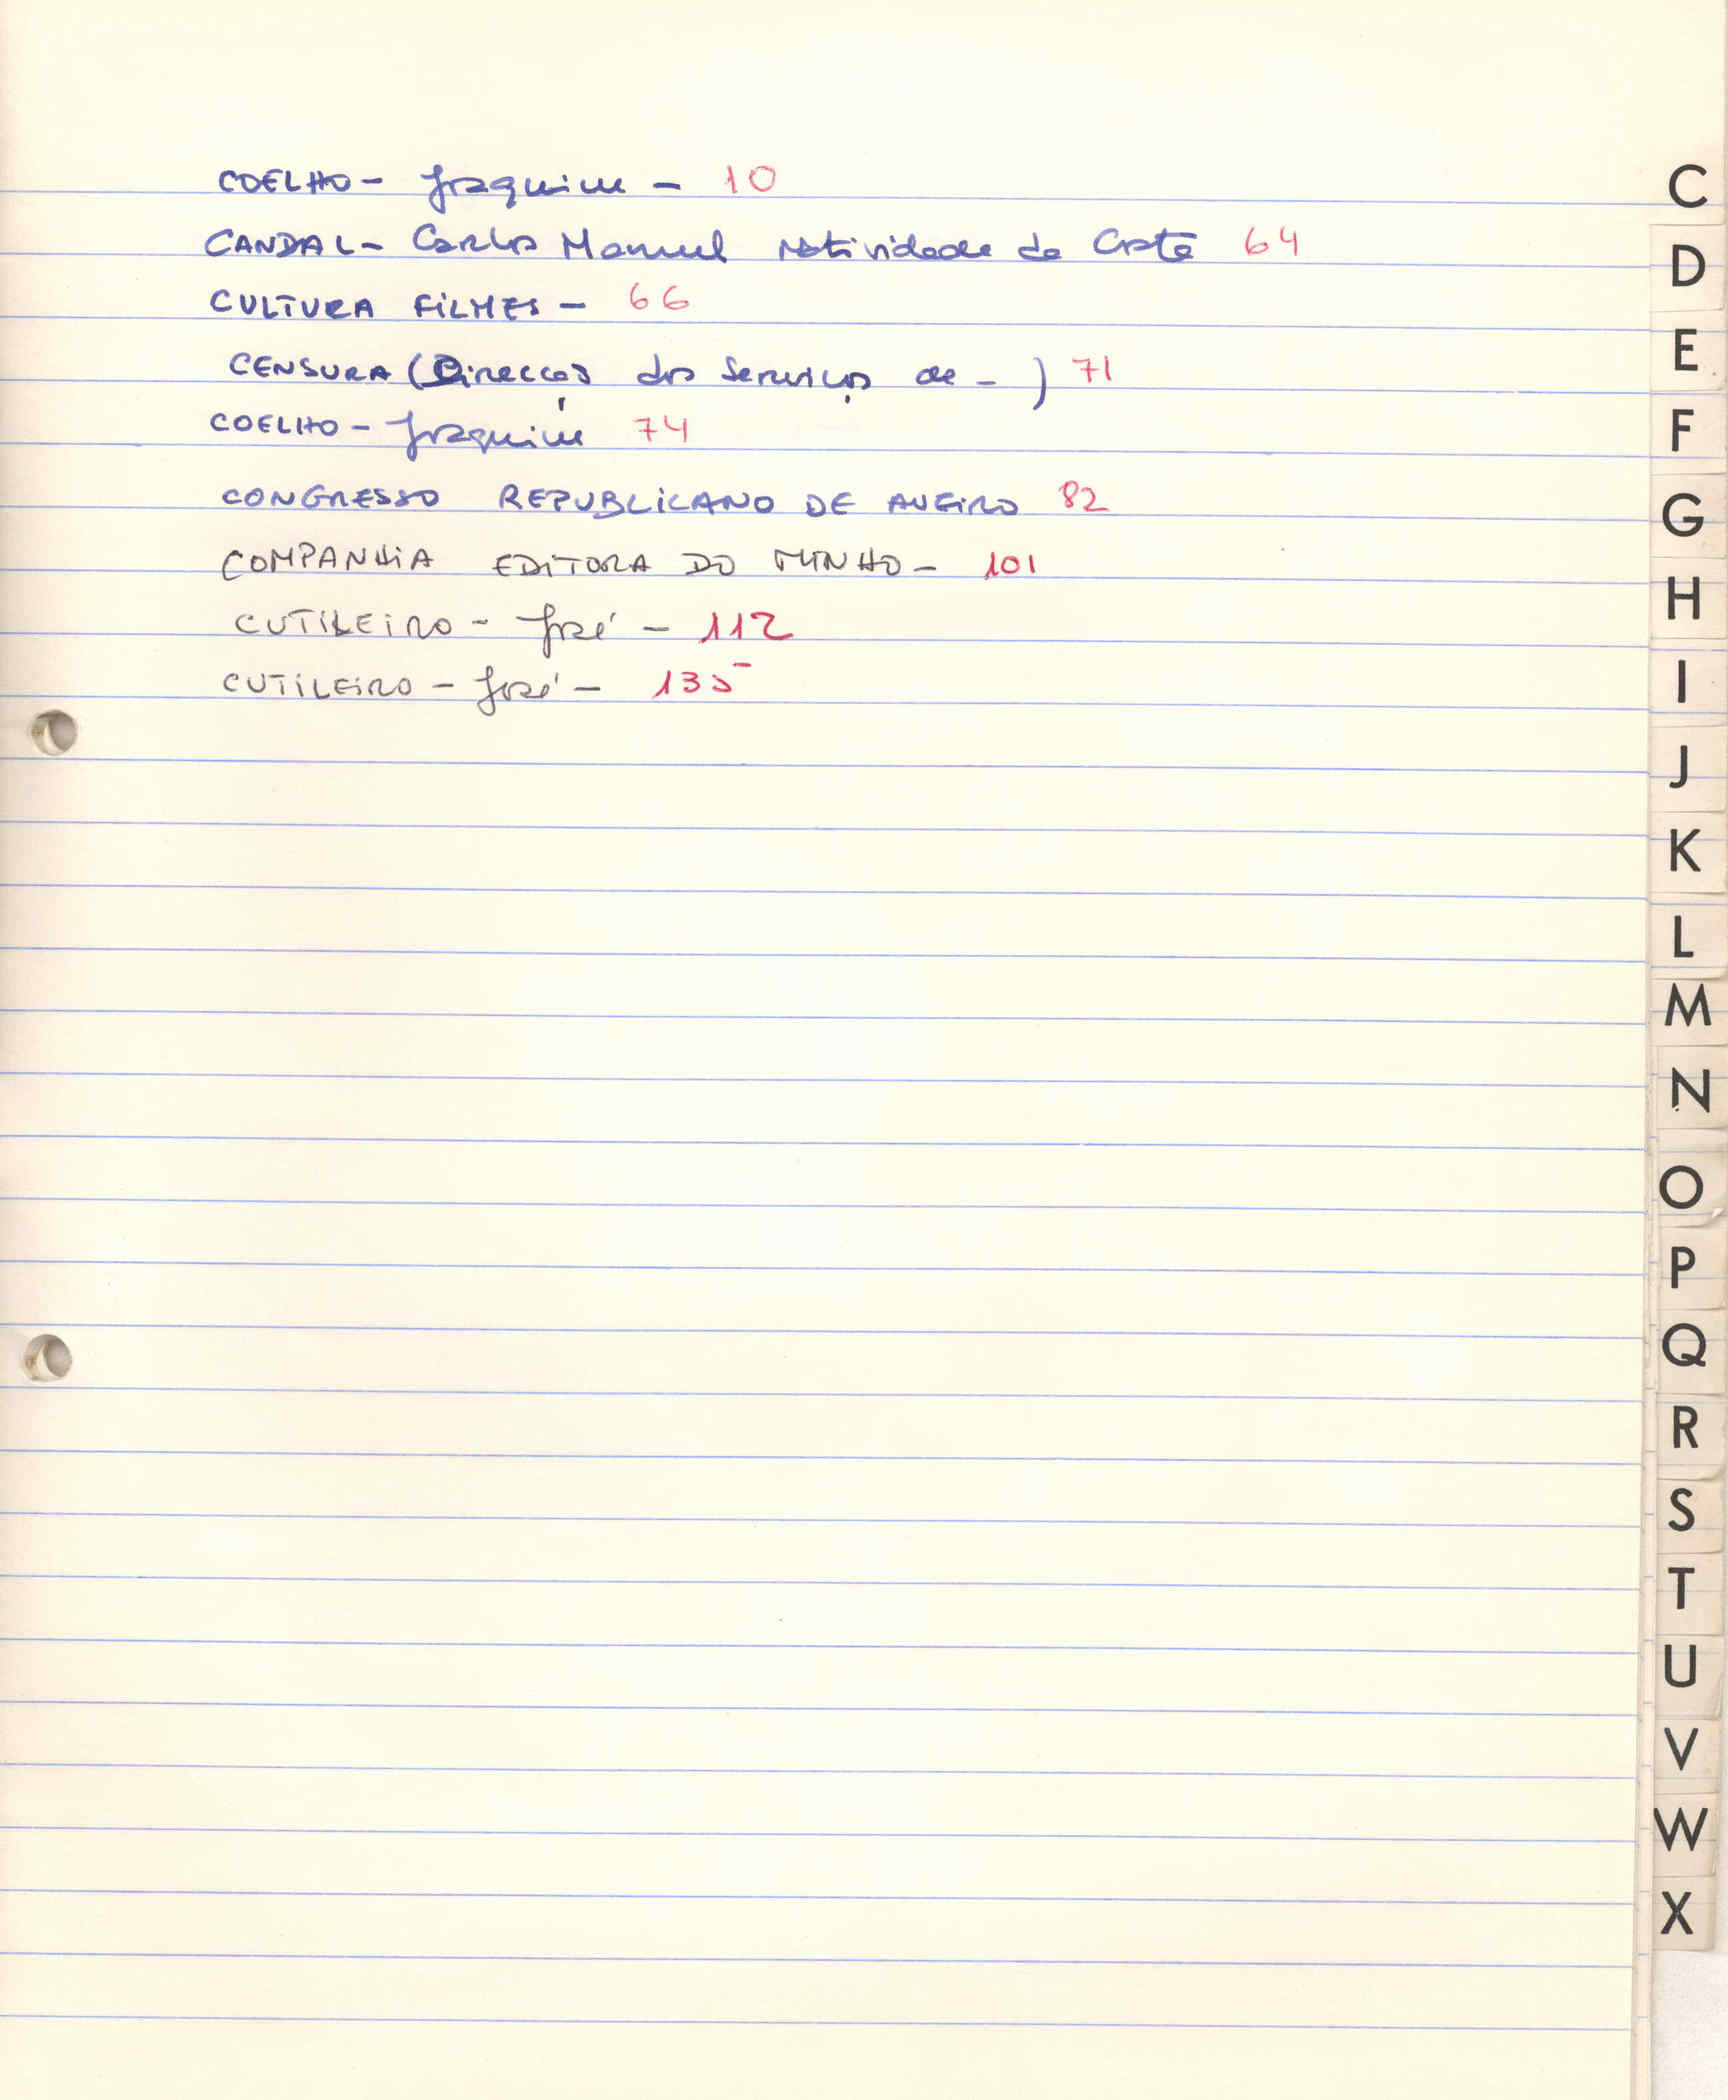 COELHO - Joaquim - 10
CANDAL - Carlos Manuel Natividade da Costa 64
CULTURA FILMES - 66
CENSURA (Direcção dos Serviços de - ) 71
COELHO - Joaquim 74
CONGRESSO REPUBLICANO DE AVEIRO 82
COMPANHIA EDITORA DO MINHO - 101
CUTILEIRO - José - 112
CUTILEIRO - José - 135
C
D
E
F
G
H
I
J
K
L
M
N
O
P
Q
R
S
T
U
V
W
X